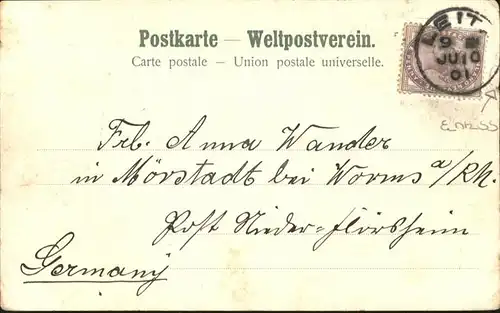 Postkarte — Weltpostverein.
Carte postale — Union postale universelle.
LEIT
9
JU 10
01
Frl. Anna Wander
in Mörstadt bei Worms a/Rh.
Post Nieder-Flörsheim
Germany